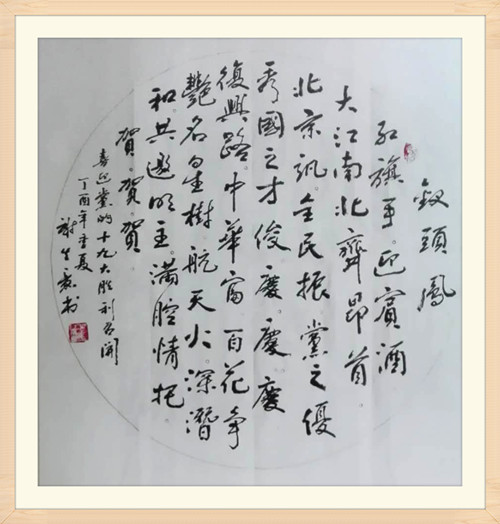 釵頭鳳
红旗手迎賓酒
大江南北齊昂首
北京訊全民振黨之優
秀國之才俊慶慶慶
復興路中華富百花争
艷名星樹航天火深潛
和共邀明主满腔情把
賀賀賀
喜迎黨的十九大胜利召開
丁酉年季夏
謝生书